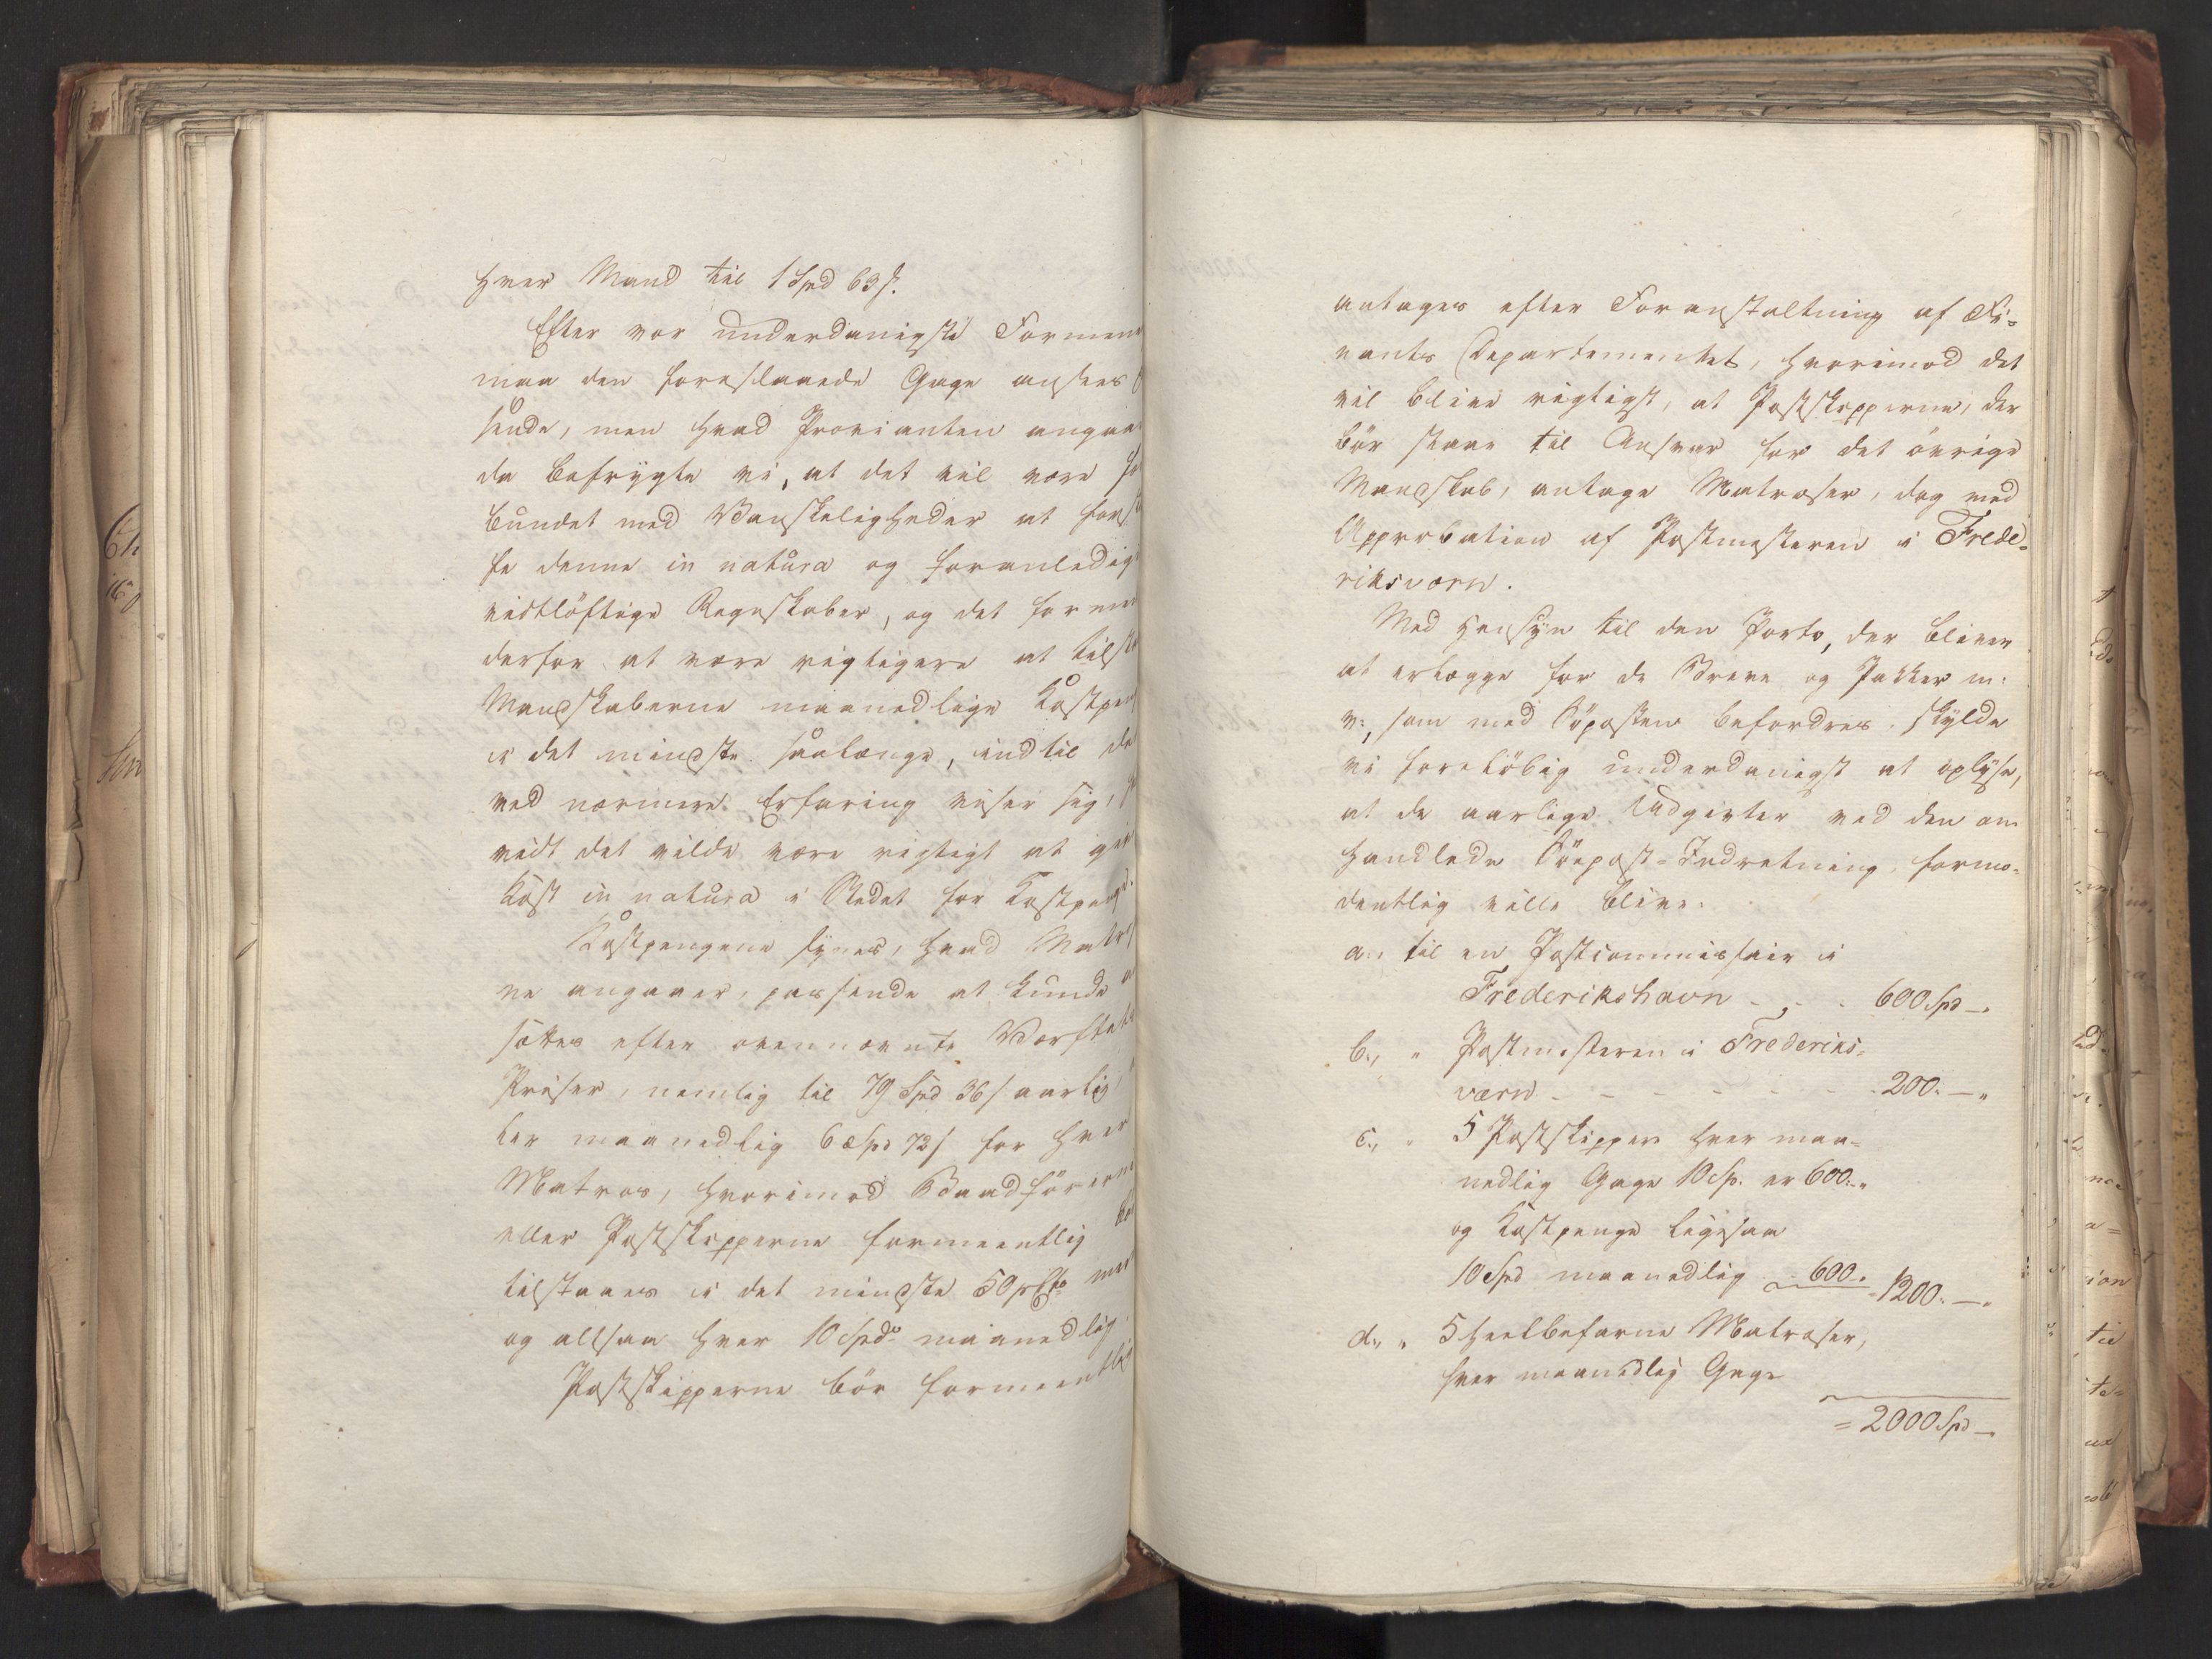 hver Mand til 1 Spd 63 s.
Efter vor underdanigste Formen
maa den foreslaaede Gage ansees
sende, men hvad Provianten angaa
da befrygte vi, at det vil være for
bundet med Vanskeligheder at forst
fe denne in natura og foranledig
vidtløftige Regnskaber, og det forme
derfor at være rigtigere at tilsta
Mandskaberne maanedlige Kostpen
i det mindste saalænge, indtil det
ved nærmere Erfaring viser sig,
vidt det vilde være rigtigt at give
Kost in natura i Stedet for Kostpenge.
Kostpengene synes, hvad Matros
ne angaaer, passende at kunde
sættes efter ovennævnte Værftets
Priser, nemlig til 79 Spd 36 s aarlig,
ler maanedlig 6 Spd 72 s for hver
Matros, hvorimod Baadførerne
eller Postskipperne formeentlig bør
tilstaaes i det mindste 50 pCto mer
og altsaa hver 10 Spd maanedlig.
Postskipperne bør formeentlig
antages efter Foranstaltning af Fi-
nants Departementet, hvorimod det
vil blive rigtigst, at Postskipperne, der
bør staae til Ansvar for det øvrige
Mandskab, antage Matroser, dog med
Approbation af Postmesteren i Frede-
riksværn.
Med Hensyn til den Porto, der bliver
at erlægge for de Breve og Pakker m:
v:, som med Søposten befordres, skylde
vi foreløbig underdanigst at oplyse,
at de aarlige Udgivter ved den om
handlede Søepost-Indretning formo-
dentlig ville blive:
a., til en Postcommissair i
Frederikshavn - - - 600 Spd -.
b., " Postmesteren i Frederiks-
værn - - - - - - - 200. - "
c., " 5 Postskippere hver maa-
nedlig Gage 10 Sp. er 600. "
og Kostpenge ligesaa
10 Spd maanedlig - 600. 1200. - "
d., " 5 heelbefarne Matroser,
hver maanedlig Gage
= 2000 Spd -.